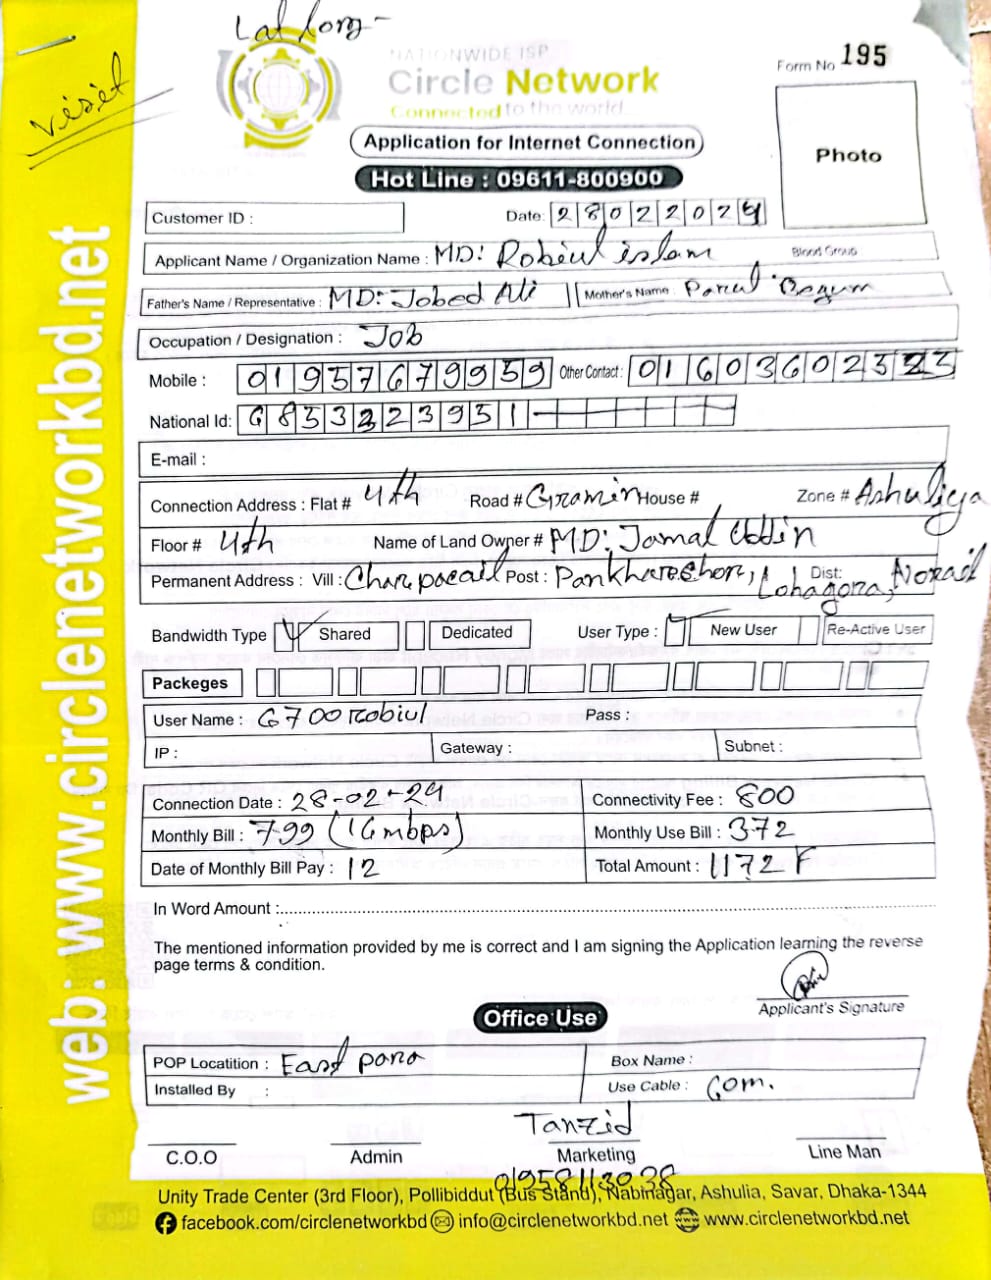 Lal
visit
NATIONWIDE ISP
Circle Network
Connected to the world
Form No 195
Application for Internet Connection
Photo
Hot Line : 09611-800900
Customer ID :
Date: 28022024
Applicant Name / Organization Name : MD: Robiul islam Blood Group
Father's Name / Representative : MD: Jobed Ali Mother's Name : Parul Begum
Occupation / Designation : Job
Mobile : 01957679959 Other Contact : 01603602323
National Id: 6853223951
E-mail :
Connection Address : Flat # 4th Road # Gramin House # Zone # Ashuliya
Floor # 4th Name of Land Owner # MD: Jamal Uddin
Permanent Address : Vill : Post : Lohagora, Dist: Norail
Bandwidth Type Shared Dedicated User Type : New User Re-Active User
Packeges
User Name : 6700Robiul Pass :
IP : Gateway : Subnet :
Connection Date : 28-02-24 Connectivity Fee : 800
Monthly Bill : 799 (16mbps) Monthly Use Bill : 372
Date of Monthly Bill Pay : 12 Total Amount : 1172
In Word Amount :
The mentioned information provided by me is correct and I am signing the Application learning the reverse
page terms & condition.
Applicant's Signature
Office Use
POP Locatition : East para Box Name :
Installed By : Use Cable : Com.
Tanzid
C.O.O Admin Marketing Line Man
Unity Trade Center (3rd Floor), Pollibiddut (Bus Stand), Nabinagar, Ashulia, Savar, Dhaka-1344
facebook.com/circlenetworkbd info@circlenetworkbd.net www.circlenetworkbd.net
web: www.circlenetworkbd.net